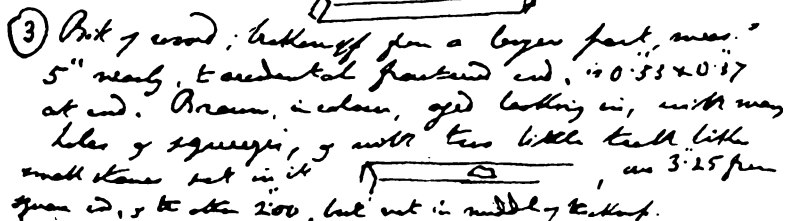 (3) Bit of wood; broken off from a larger part, meas.
5" nearly, to accidental fractured end, is 0."53 x 0."37
at end. Brown, in colour, aged looking in, with many
holes & squeezes, & with two little
small stones set in it , one 3."25 from
square end, & the other 2."00, but not in middle of the